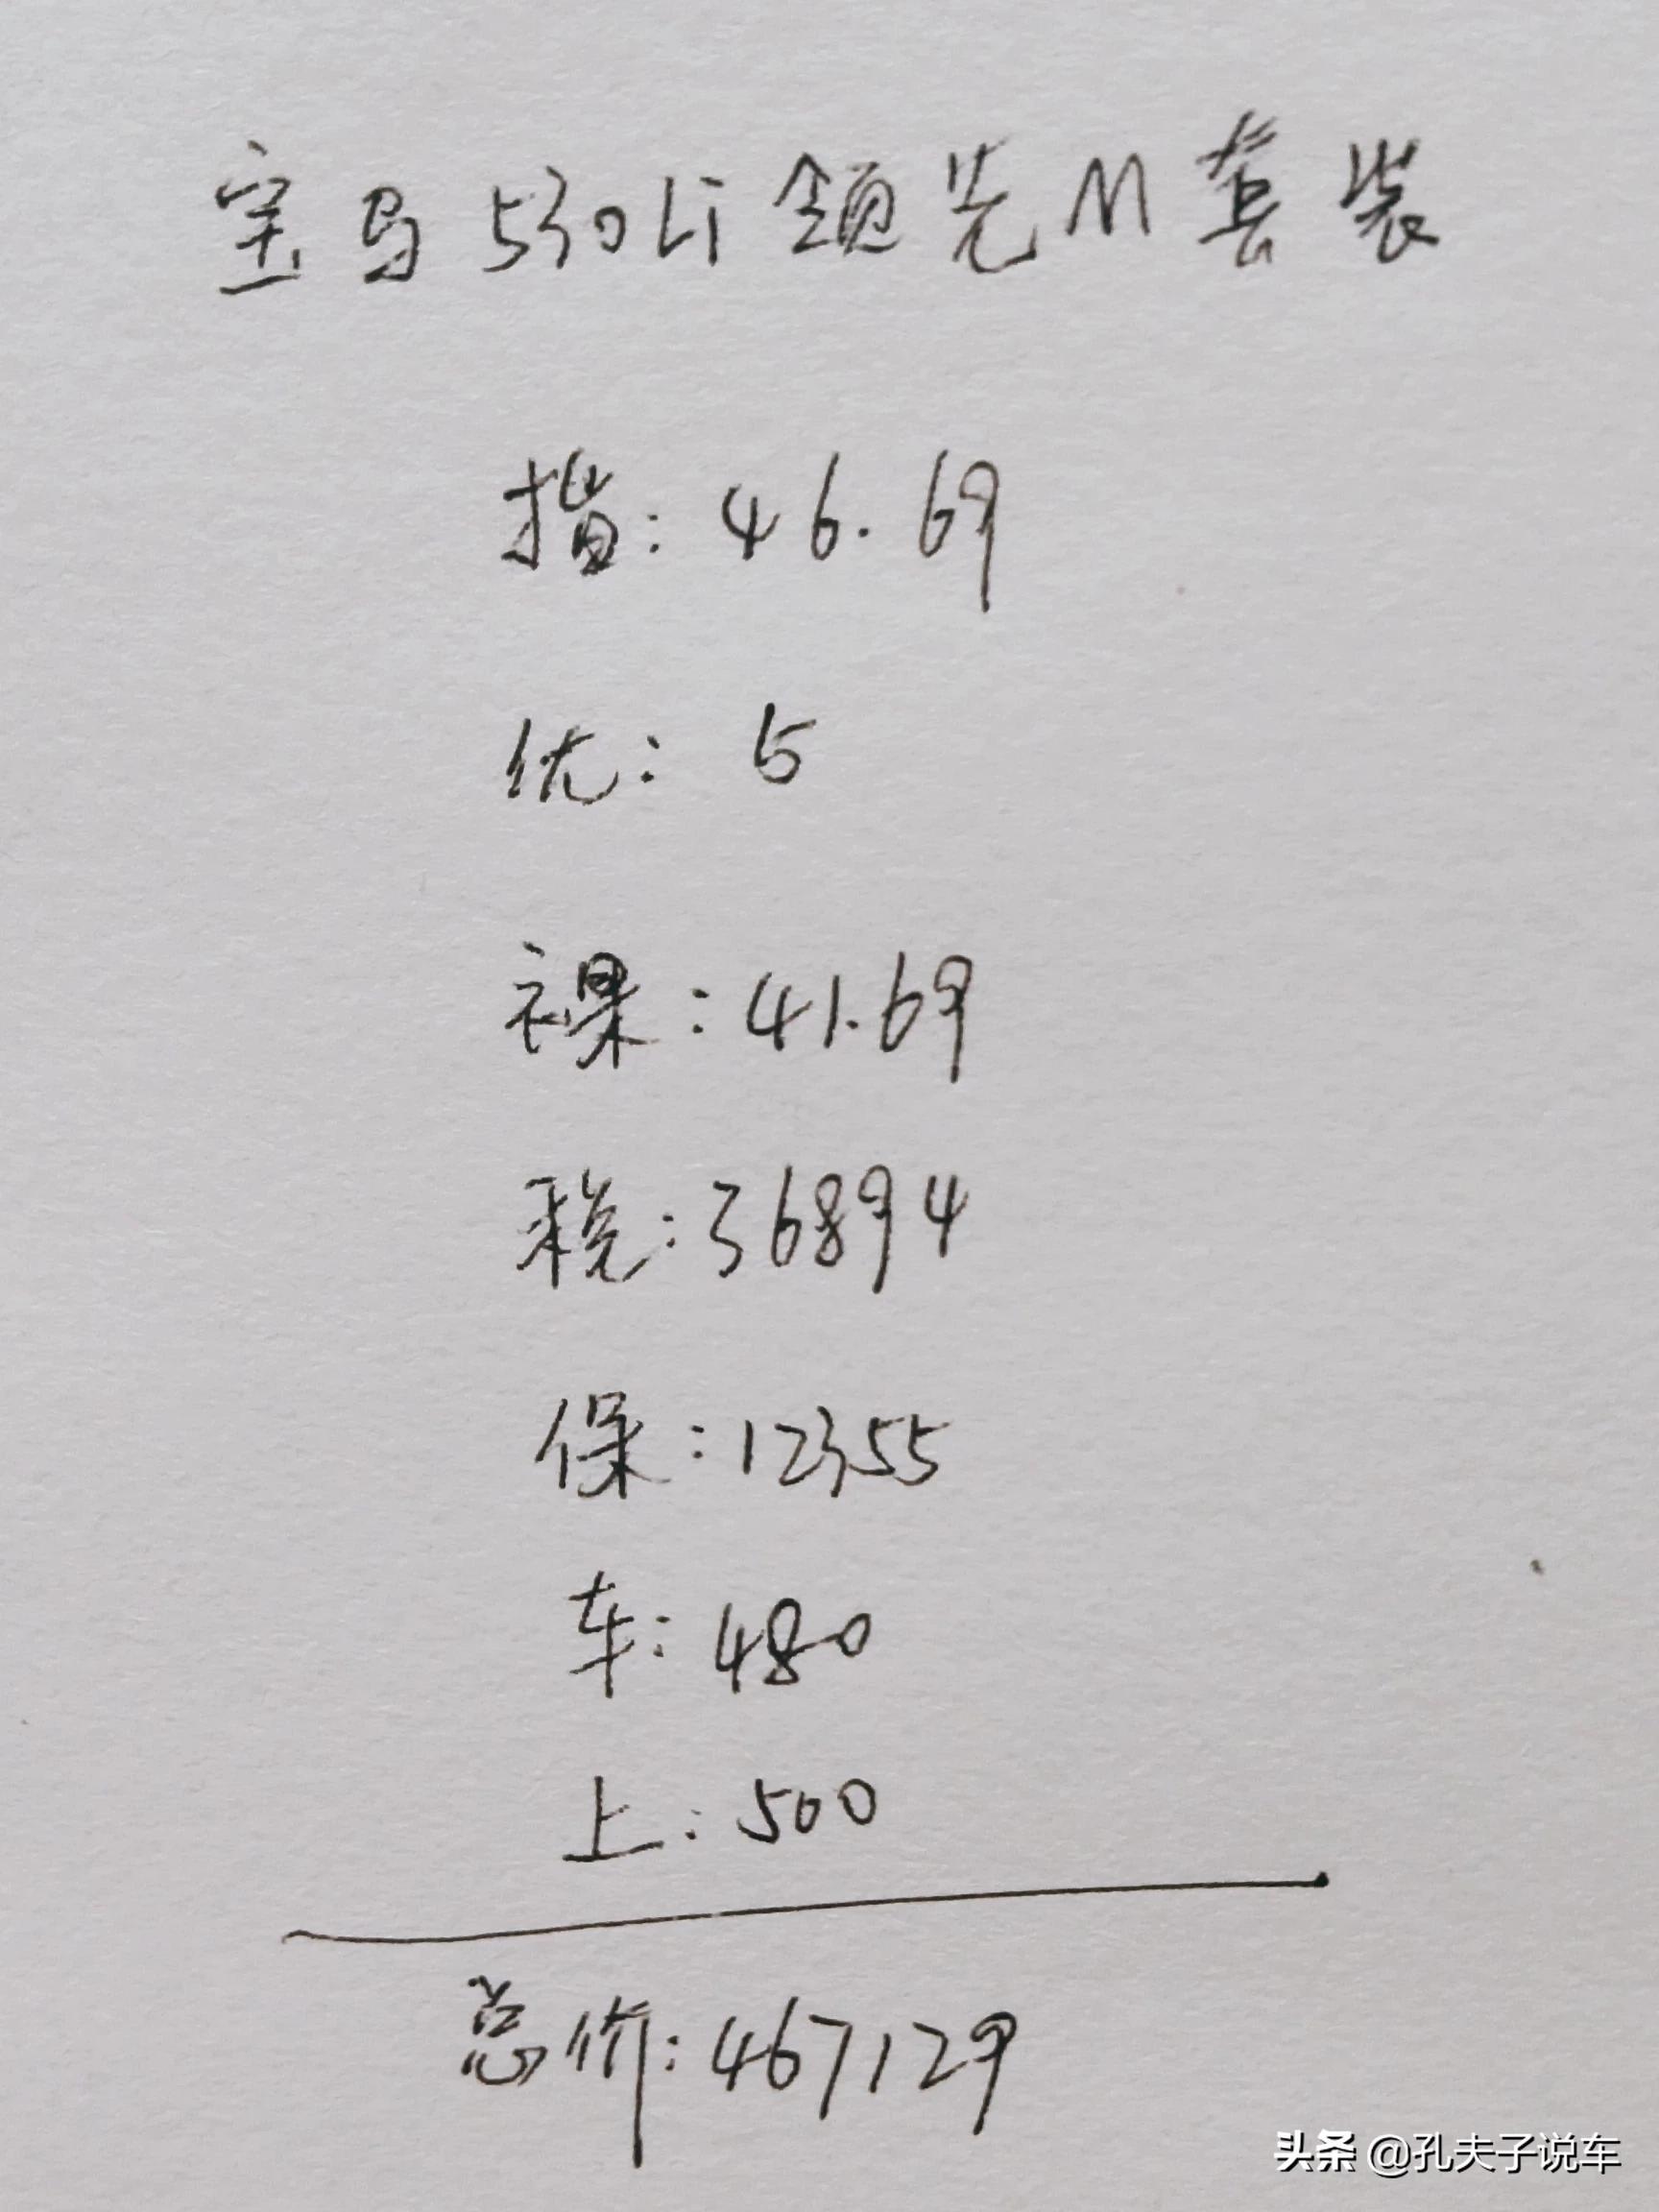 宝马530Li领先M套装
指:46.69
优:5
裸:41.69
税:36894
保:12355
车:480
上:500
总价:467129
头条 @孔夫子说车